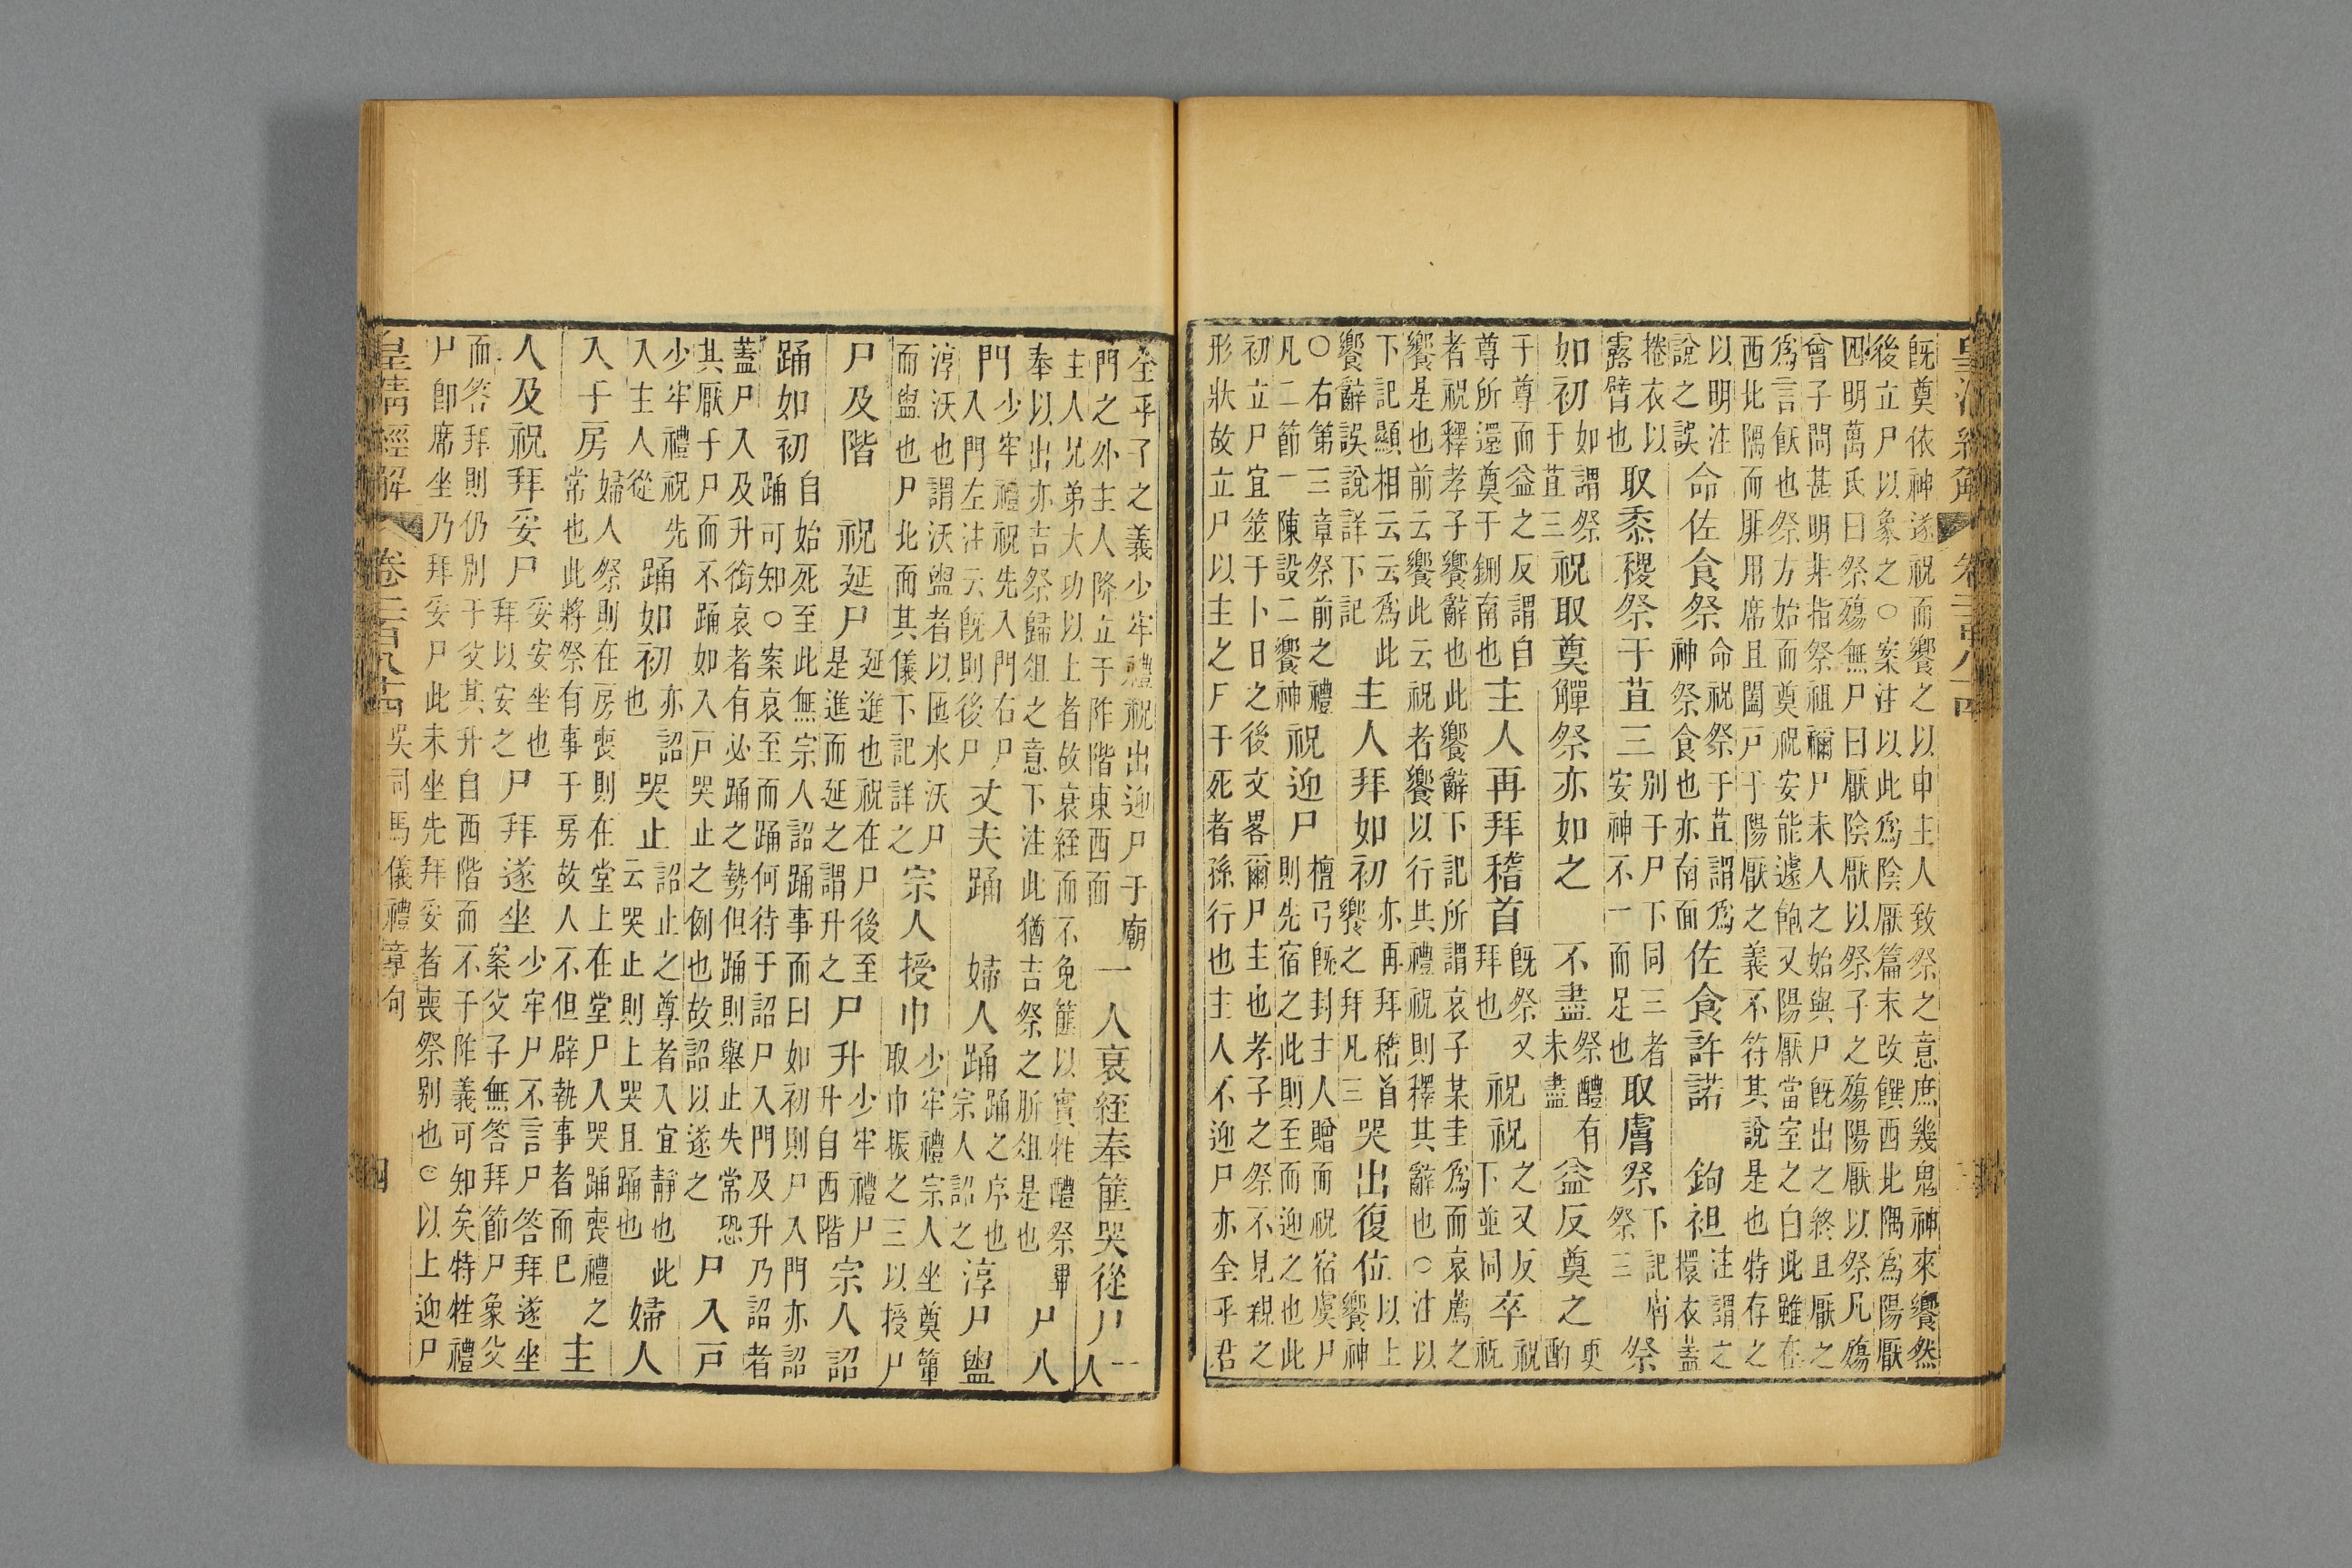 既奠依神遂祝而饗之以申主人致祭之意庶幾鬼神來饗然
後立尸以象之○案注以此為陰厭篇末改饌西北隅為陽厭
四明萬氏曰祭殤無尸曰厭陰厭以祭子之殤陽厭以祭凡殤
曾子問甚明非指祭祖禰尸未入之始與尸既出之終且厭之
為言飫也祭方始而奠祝安能遽飽又陽厭當室之白此雖在
西北隅而屏用席且闔戶于陽厭之義不符其說是也特存之
以明注說之誤命佐食祭命祝祭于苴謂為神祭食也亦南面佐食許諾鉤袒注謂之擐衣蓋
捲衣以露臂也取黍稷祭于苴三別于尸下同三者安神不一而足也取膚祭下記膚祭三祭
如初如謂祭于苴三祝取奠觶祭亦如之不盡祭醴有未盡益反奠之更酌
于尊而益之反謂自尊所還奠于鉶南也主人再拜稽首既祭又拜也祝祝之又反下並同卒祝祝
者祝釋孝子饗辭也此饗辭下記所謂哀子某圭為而哀薦之
饗是也前云饗此云祝者饗以行其禮祝則釋其辭也○注以
下記顯相云云為此饗辭誤說詳下記主人拜如初亦再拜稽首饗之拜凡三哭出復位以上饗神
○右第三章祭前之禮凡二節一陳設二饗神祝迎尸檀弓既封主人贈而祝宿虞尸則先宿之此則至而迎之也此
初立尸宜筮于卜日之後文畧爾尸主也孝子之祭不見親之
形狀故立尸以主之尸于死者孫行也主人不迎尸亦全乎君
全乎子之義少牢禮祝出迎尸于廟門之外主人降立于阼階東西面一人衰絰奉篚哭從尸一人
主人兄弟大功以上者故衰絰而不免篚以實牲醴祭畢奉以出亦吉祭歸俎之意下注此猶吉祭之肵俎是也尸入
門少牢禮祝先入門右尸入門左注云既則後尸丈夫踊婦人踊踊之序也宗人詔之淳尸盥
淳沃也謂沃盥者以匜水沃尸而盥也尸北面其儀下記詳之宗人授巾少牢禮宗人坐奠簞取巾振之三以授尸
尸及階祝延尸延進也祝在尸後至是進而延之謂升之尸升少牢禮尸升自西階宗人詔
踊如初自始死至此無宗人詔踊事而曰如初則尸入門亦詔踊可知○案哀至而踊何待于詔尸入門及升乃詔者
蓋尸入及升銜哀者有必踊之勢但踊則舉止失常恐其厭于尸而不踊如入戶哭止之例也故詔以遂之尸入戶
少牢禮祝先入主人從踊如初亦詔也哭止詔止之尊者入宜靜也此云哭止則上哭且踊也婦人
入于房婦人祭則在房喪則在堂上在堂尸入哭踊喪禮之常也此將祭有事于房故人不但辟執事者而巳主
人及祝拜妥尸妥安坐也拜以安之尸拜遂坐少牢尸不言尸答拜遂坐案父子無答拜節尸象父
而答拜則仍別于父其升自西階而不于阼義可知矣特牲禮
尸卽席坐乃拜妥尸此未坐先拜妥者喪祭別也○以上迎尸
皇清經解 卷二百八十四 吳司馬儀禮章句 四